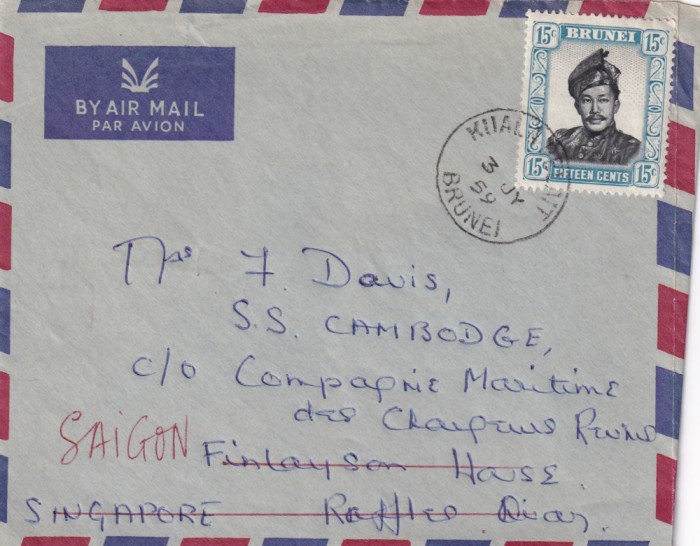 15c BRUNEI 15c
15c FIFTEEN CENTS 15c
BY AIR MAIL
PAR AVION
KUALA BELAIT
3 JY
59
BRUNEI
Mrs F. Davis,
S.S. CAMBODGE,
c/o Compagnie Maritime
des Chargeurs Reunis
SAIGON
Finlayson House.
SINGAPORE Raffles Quay.